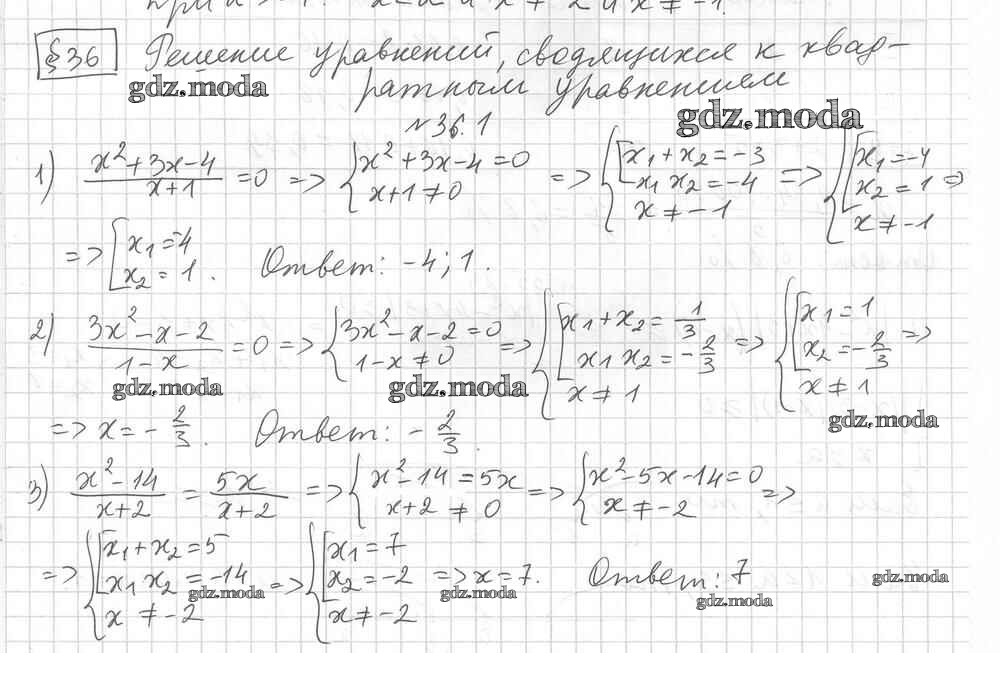 при x ≠ -1.
§36 Решение уравнений, сводящихся к квад-
ратным уравнением
gdz.moda
gdz.moda
№36.1
1) (x²+3x-4)/(x+1) = 0 => { x²+3x-4=0; x+1≠0 => { [ x₁+x₂=-3; x₁x₂=-4; x≠-1 => { [ x₁=-4; x₂=1; x≠-1 =>
=> [ x₁=-4; x₂=1. Ответ: -4; 1.
2) (3x²-x-2)/(1-x) = 0 => { 3x²-x-2=0; 1-x≠0 => { [ x₁+x₂=1/3; x₁x₂=-2/3; x≠1 => { [ x₁=1; x₂=-2/3; x≠1 =>
gdz.moda
gdz.moda
gdz.moda
=> x=-2/3. Ответ: -2/3.
3) (x²-14)/(x+2) = 5x/(x+2) => { x²-14=5x; x+2≠0 => { x²-5x-14=0; x≠-2 =>
=> { [ x₁+x₂=5; x₁x₂=-14; x≠-2 => { [ x₁=7; x₂=-2; x≠-2 => x=7. Ответ: 7
gdz.moda
gdz.moda
gdz.moda
gdz.moda